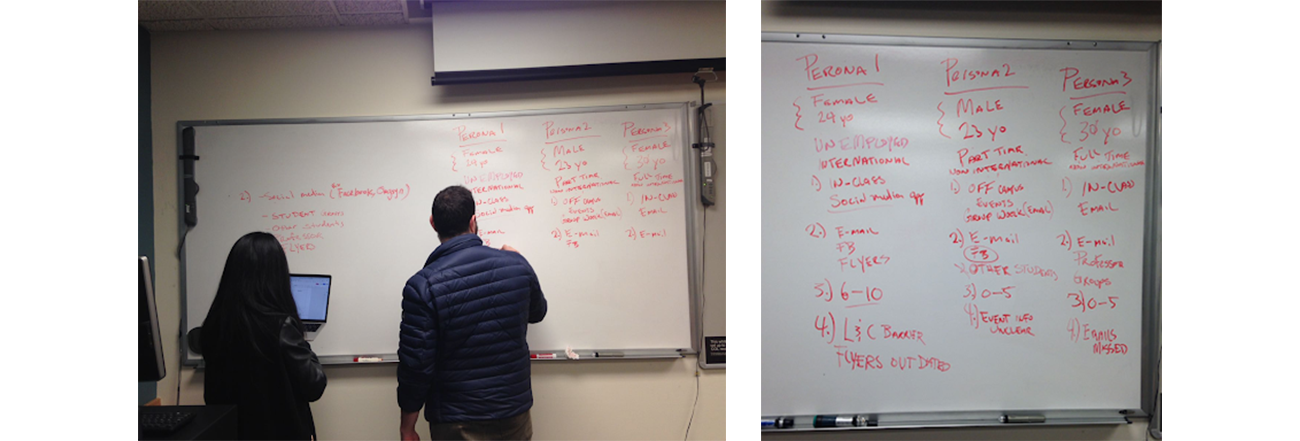 2) - Social media
- STUDENT
- Other students
PERONA 1
FEMALE
24 yo
UNEMPLOYED
INTERNATIONAL
IN-CLASS
Social media app
E-MAIL
FB
PRISONA 2
MALE
23 yo
PART TIME
NON INTERNATIONAL
1) OFF CAMPUS
EVENTS
GROUP WORK (EMAIL)
2) E-MAIL
FB
PERSONA 3
FEMALE
30 yo
FULL-TIME
NON INTERNATIONAL
1) IN-CLASS
EMAIL
2) E-MAIL
PERONA 1
FEMALE
24 yo
UNEMPLOYED
INTERNATIONAL
1) IN-CLASS
Social media app
2.) E-MAIL
FB
FLYERS
3.) 6-10
4.) L & C BARRIER
FLYERS OUT DATED
PRISONA 2
MALE
23 yo
PART TIME
NON INTERNATIONAL
1) OFF CAMPUS
EVENTS
GROUP WORK (EMAIL)
2.) E-MAIL
FB
OTHER STUDENTS
3.) 0-5
4.) EVENT INFO
UNCLEAR
PERSONA 3
FEMALE
30 yo
FULL-TIME
NON INTERNATIONAL
1) IN-CLASS
EMAIL
2.) E-MAIL
PROFESSOR
GROUPS
3) 0-5
4) EMAILS
MISSED